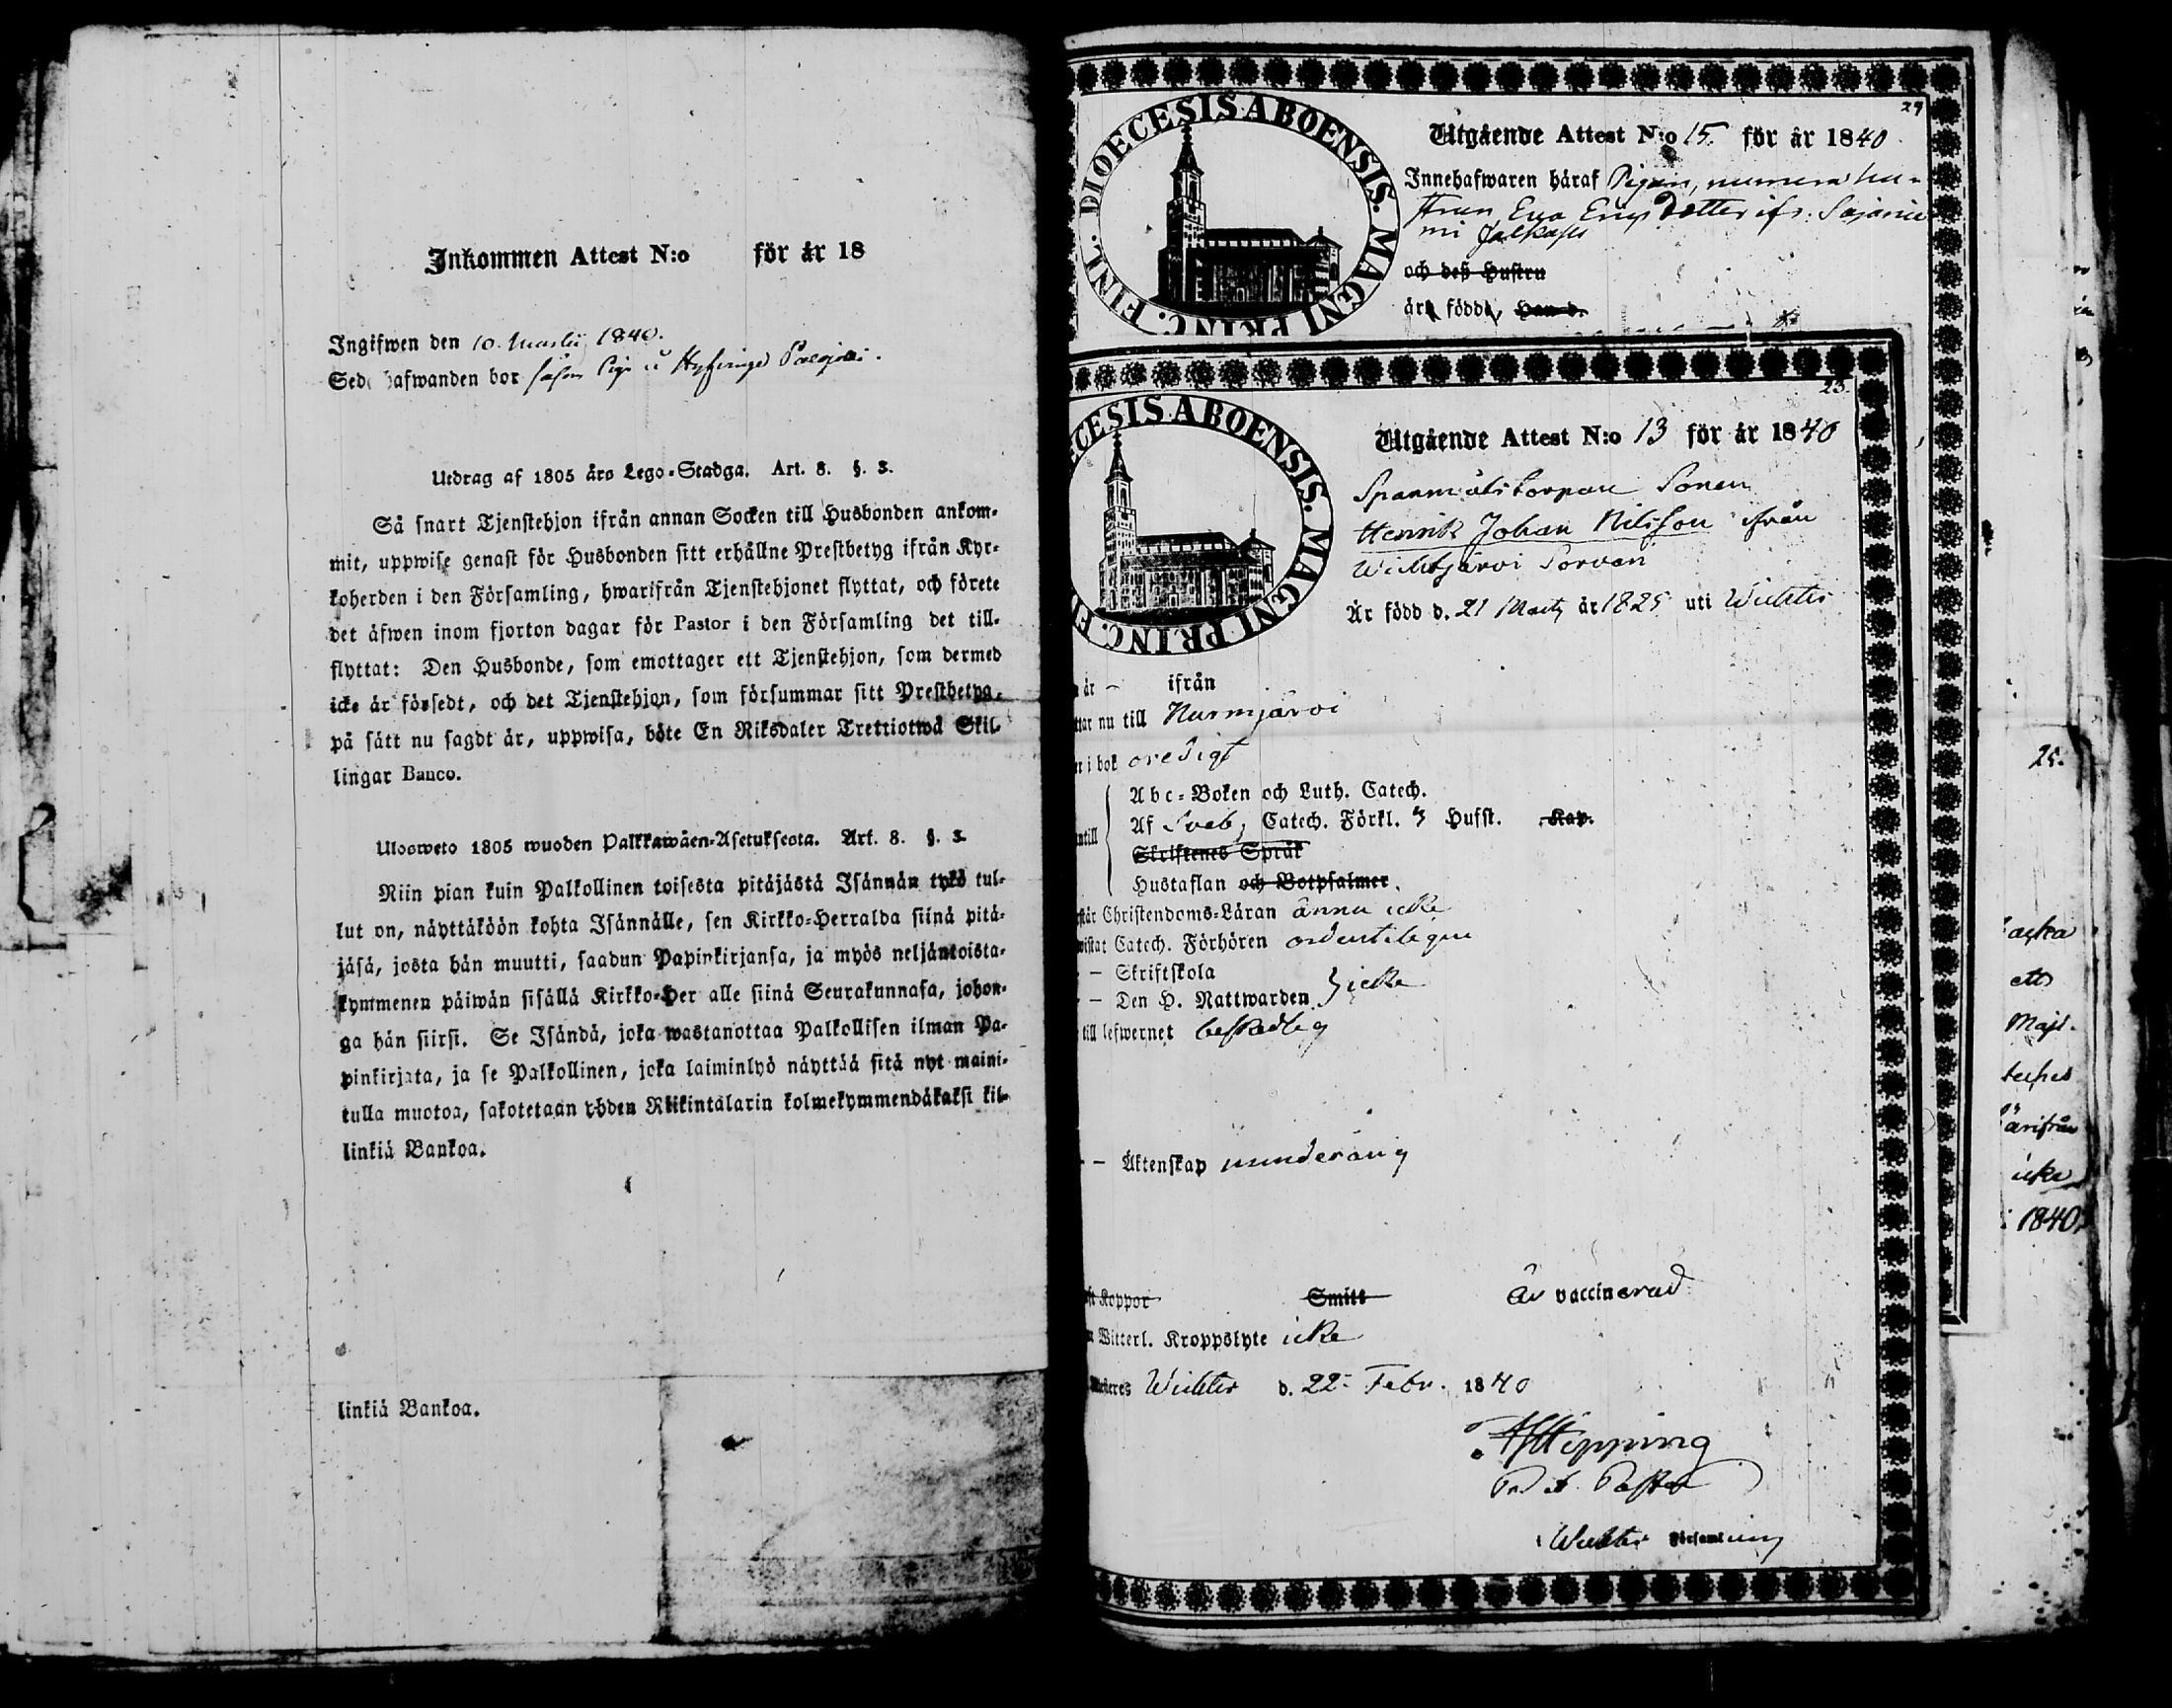 Inkommen Attest N:o för år 18
Ingifwen den 10. Martii 1840.
Sed hafwanden bor såsom Piga i Hyfvinge
Utdrag af 1805 års Lego-Stadga. Art. 8. §. 3.
Så snart Tjenstehjon ifrån annan Socken till Husbonden ankom-
mit, uppwise genast för Husbonden sitt erhållne Prestbetyg ifrån Kyr-
koherden i den Församling, hwarifrån Tjenstehjonet flyttat, och förete
det äfwen inom fjorton dagar för Pastor i den Församling det till-
flyttat: Den Husbonde, som emottager ett Tjenstehjon, som dermed
icke är försedt, och det Tjenstehjon, som försummar sitt Prestbetyg,
på sätt nu sagdt är, uppwisa, böte En Riksdaler Trettiotwå Skil-
lingar Banco.
Uloswetо 1805 wuoden Palkkawäen-Asetuksesta. Art. 8. §. 3.
Niin pian kuin Palkollinen toisesta pitäjästä Isännän tykö tul-
lut on, näyttäköön kohta Isännälle, sen Kirkko-Herralda siinä pitä-
jäsä, josta hän muutti, saadun Papinkirjansa, ja myös neljäntoista-
kymmenen päiwän sisällä Kirkko-Her alle siinä Seurakunnasa, johon-
ga hän siirsi. Se Isändä, joka wastanottaa Palkollisen ilman Pa-
pinkirjata, ja se Palkollinen, joka laiminlyö näyttää sitä nyt maini-
tulla muotoa, sakotetaan yhden Riikintalarin kolmekymmendäkaksi kil-
linkiä Bankoa.
linkiä Bankoa.
29
DIOECESIS ABOENSIS. MAGNI PRINC. FINL.
Utgående Attest N:o 15. för år 1840
Innehafwaren häraf Pigan, numera hu-
strun Eva Ericsdotter ifr. Sajanie
mi
och deß Hustru
är födde, Han d.
23.
CESIS ABOENSIS. MAGNI PRINC. F
Utgående Attest N:o 13 för år 1840
Spanmålstorpare Sonen
Henrik Johan Nilsson ifrån
Wichtjärvi Torvari
Är född d. 21 Martz år 1825 uti Wichtis
år – ifrån
ttar nu till Nurmjärvi
r i bok oredigt
Abc-Boken och Luth. Catech.
Af Sveb. Catech. Förkl. 3 Hufst. Kap.
Skriftenes Språk
Hustaflan och Botpsalmer.
ntill
står Christendoms-Läran ännu icke
wistat Catech. Förhören ordentligen
– Skriftskola
– Den H. Nattwarden } icke
till lefwernet beskedlig
– Äktenskap minderårig
ft Koppor Smitt är vaccinerad
n Witterl. Kroppslyte icke
Wichtis d. 22 Febr. 1840
AJHipping
Pr. Pastor
Wichtis Församling
25.
ett
Majt.
ärifrån
icke
1840